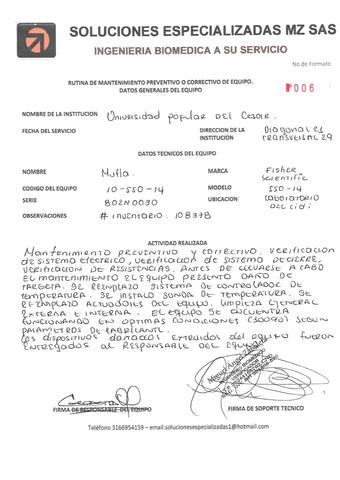 SOLUCIONES ESPECIALIZADAS MZ SAS
INGENIERIA BIOMEDICA A SU SERVICIO
No de Formato
RUTINA DE MANTENIMIENTO PREVENTIVO O CORRECTIVO DE EQUIPO.
DATOS GENERALES DEL EQUIPO
Nº006
NOMBRE DE LA INSTITUCION Universidad popular DEL Cesar.
FECHA DEL SERVICIO DIRECCION DE LA INSTITUCION Diagonal 21 TRANSVERSAL 29
DATOS TECNICOS DEL EQUIPO
NOMBRE Mufla. MARCA Fisher Scientific
CODIGO DEL EQUIPO 10-550-14 MODELO 550-14
SERIE 802N0030 UBICACION LABORATORIO DEL cidi
OBSERVACIONES # INVENTARIO. 108378
ACTIVIDAD REALIZADA
Mantenimiento preventivo y correctivo. verificacion
de sistema electrico, verificacion de sistema DE CIERRE,
verificacion DE RESISTENCIAS. ANTES DE LLEVARSE A CABO
EL MANTENIMIENTO EL EQUIPO PRESENTO DAÑO DE
TARGETA. SE REEMPLAZO SISTEMA DE CONTROLADOR DE
TEMPERATURA. SE INSTALO SONDA DE TEMPERATURA. SE
REEMPLAZO ACTUADORES DEL EQUIPO. LIMPIEZA GENERAL
EXTERNA E INTERNA. EL EQUIPO SE ENCUENTRA
FUNCIONANDO EN OPTIMAS CONDICIONES SEGUN
PARAMETROS DE FABRICANTE.
Los dispositivos dañados extraidos del equipo fueron
ENTREGADOS AL RESPONSABLE DEL EQUIPO
FIRMA DE RESPONSABLE DEL EQUIPO FIRMA DE SOPORTE TECNICO
Teléfono 3166954159 – email:solucionesespecializadas1@hotmail.com